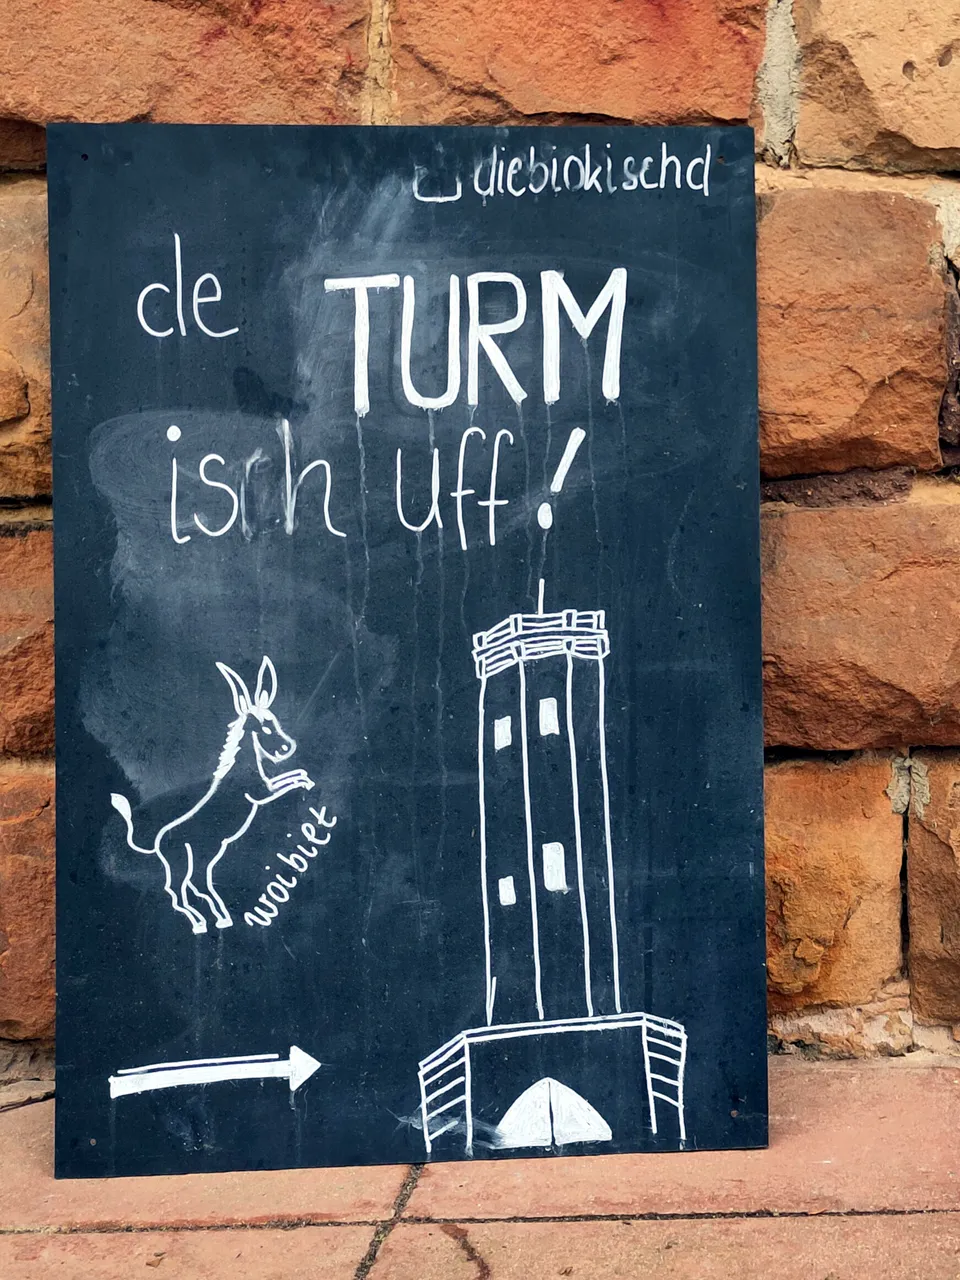 diebiokischd
de TURM
isch uff!
woibiet